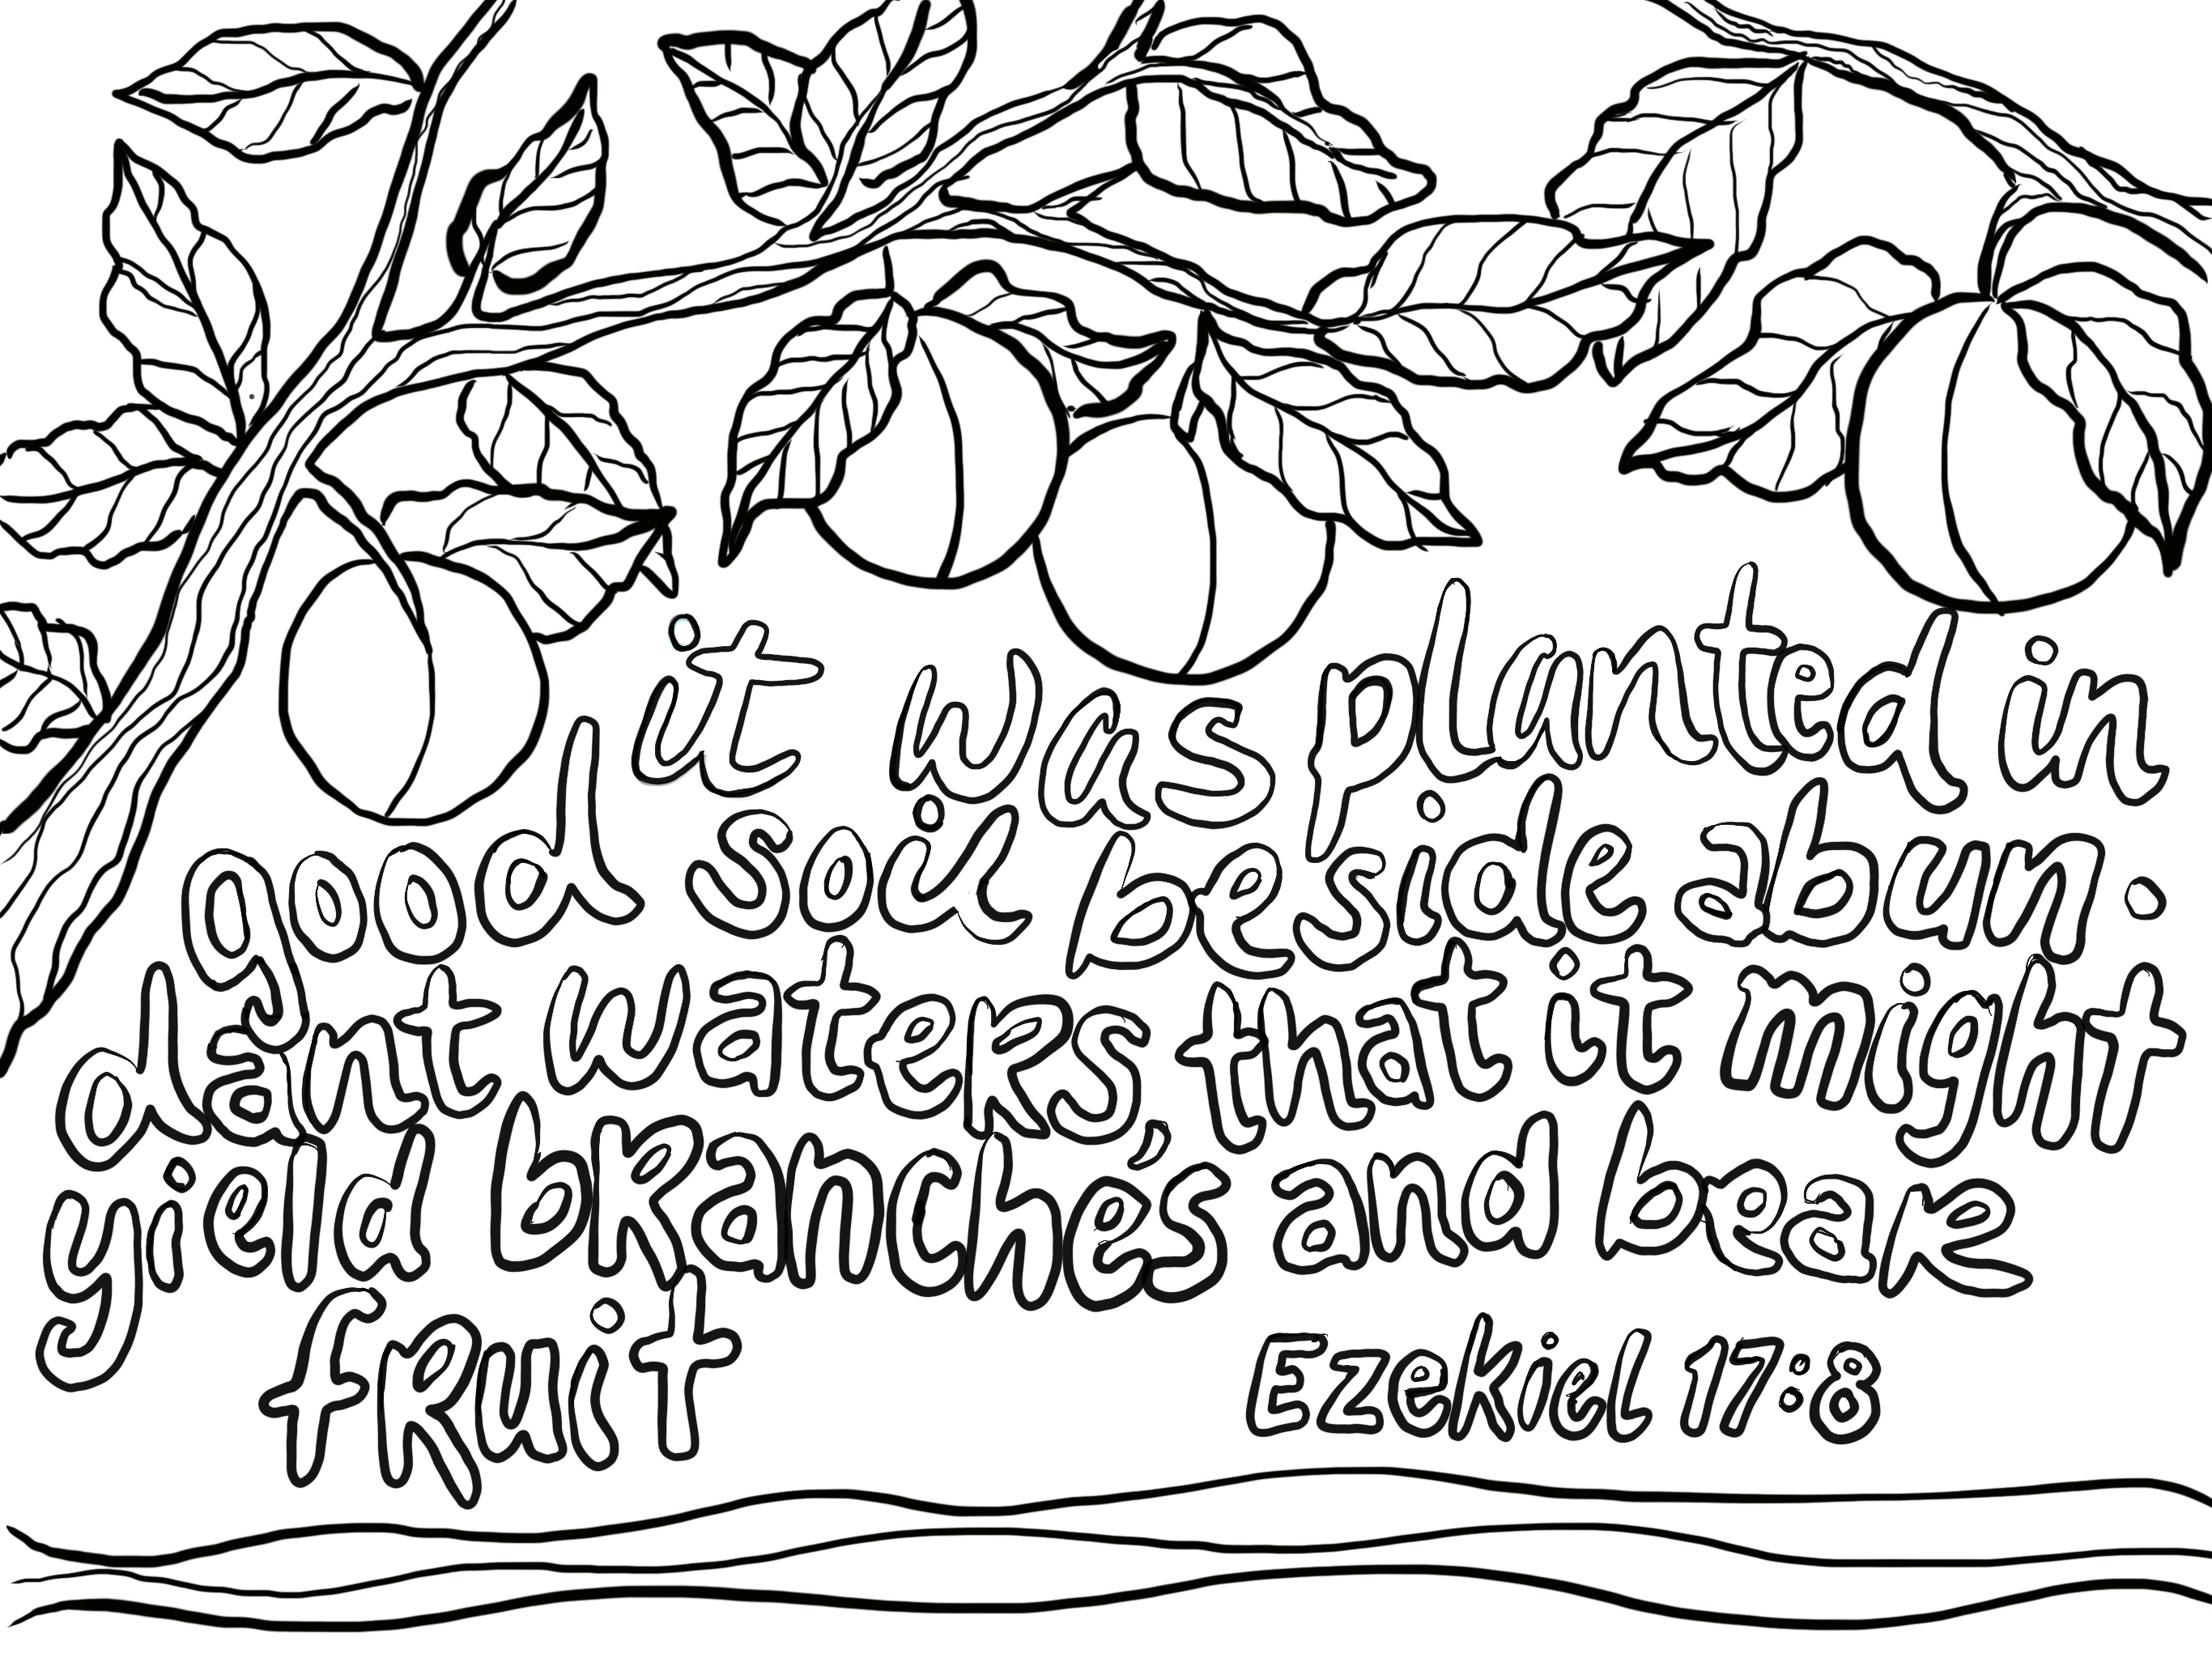 it was planted in
good soil beside abun-
dant waters, that it might
yield branches and bear
fruit
Ezekiel 17:8